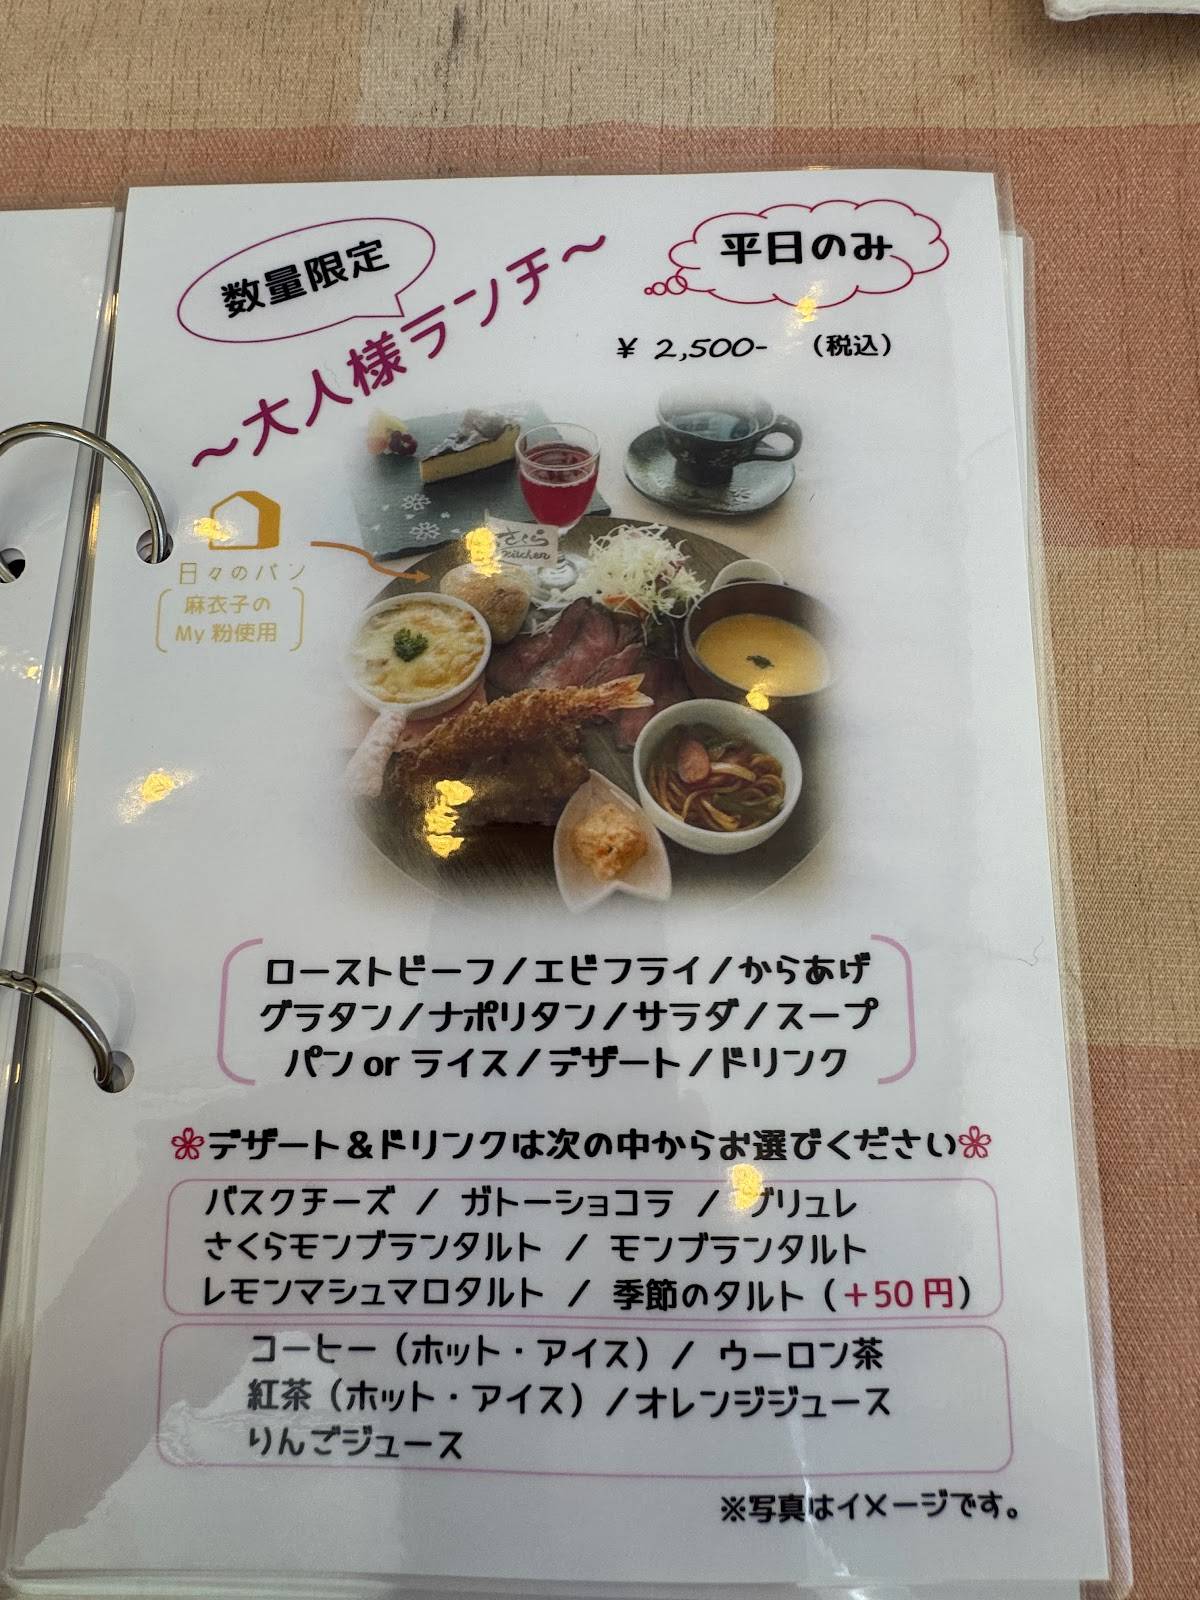 数量限定
平日のみ
～大人様ランチ～
¥ 2,500- （税込）
さくら
kitchen
日々のパン
麻衣子の
My 粉使用
ローストビーフ／エビフライ／からあげ
グラタン／ナポリタン／サラダ／スープ
パン or ライス／デザート／ドリンク
デザート＆ドリンクは次の中からお選びください
バスクチーズ / ガトーショコラ / ブリュレ
さくらモンブランタルト / モンブランタルト
レモンマシュマロタルト / 季節のタルト（＋50 円）
コーヒー（ホット・アイス）/ ウーロン茶
紅茶（ホット・アイス）/オレンジジュース
りんごジュース
※写真はイメージです。